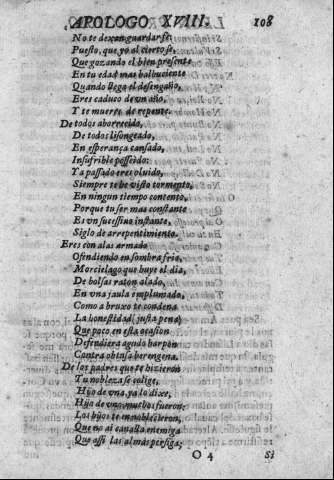 APOLOGO XVIII. 108
No te dexan guardarse:
Puesto, que yo al cierto se,
Que gozando el bien presente
En tu edad mas balbuciente
Quando llega el desengaño,
Eres caduco de un año,
Y te muerte de repente.
De todos aborrecido,
De todos lisongeado,
En esperança cansado,
Insufrible posseìdo:
Ya passado eres oluido,
Siempre te he visto tormento,
En ningun tiempo contento,
Porque tu ser mas constante
Es vn sucessiuo instante,
Siglo de arrepentimiento.
Eres con alas armado
Ofendiendo en sombra fria,
Morcielago que huye el dia,
De bolsas raton alado,
En vna jaula emplumado,
Como a bruxo te condena
La honestidad (justa pena)
Que poco en esta ocasion
Defendiera agudo harpon
Contra obtusa berengena.
De los padres que te hizieron
Tu nobleza se colige,
Hijo de vna, ya lo dixe,
Hijo de vno, muchos fueron:
Los hijos te ennoblecieron,
Que no ai canalla enemiga
Que assi las almas persiga;
O 4 Si